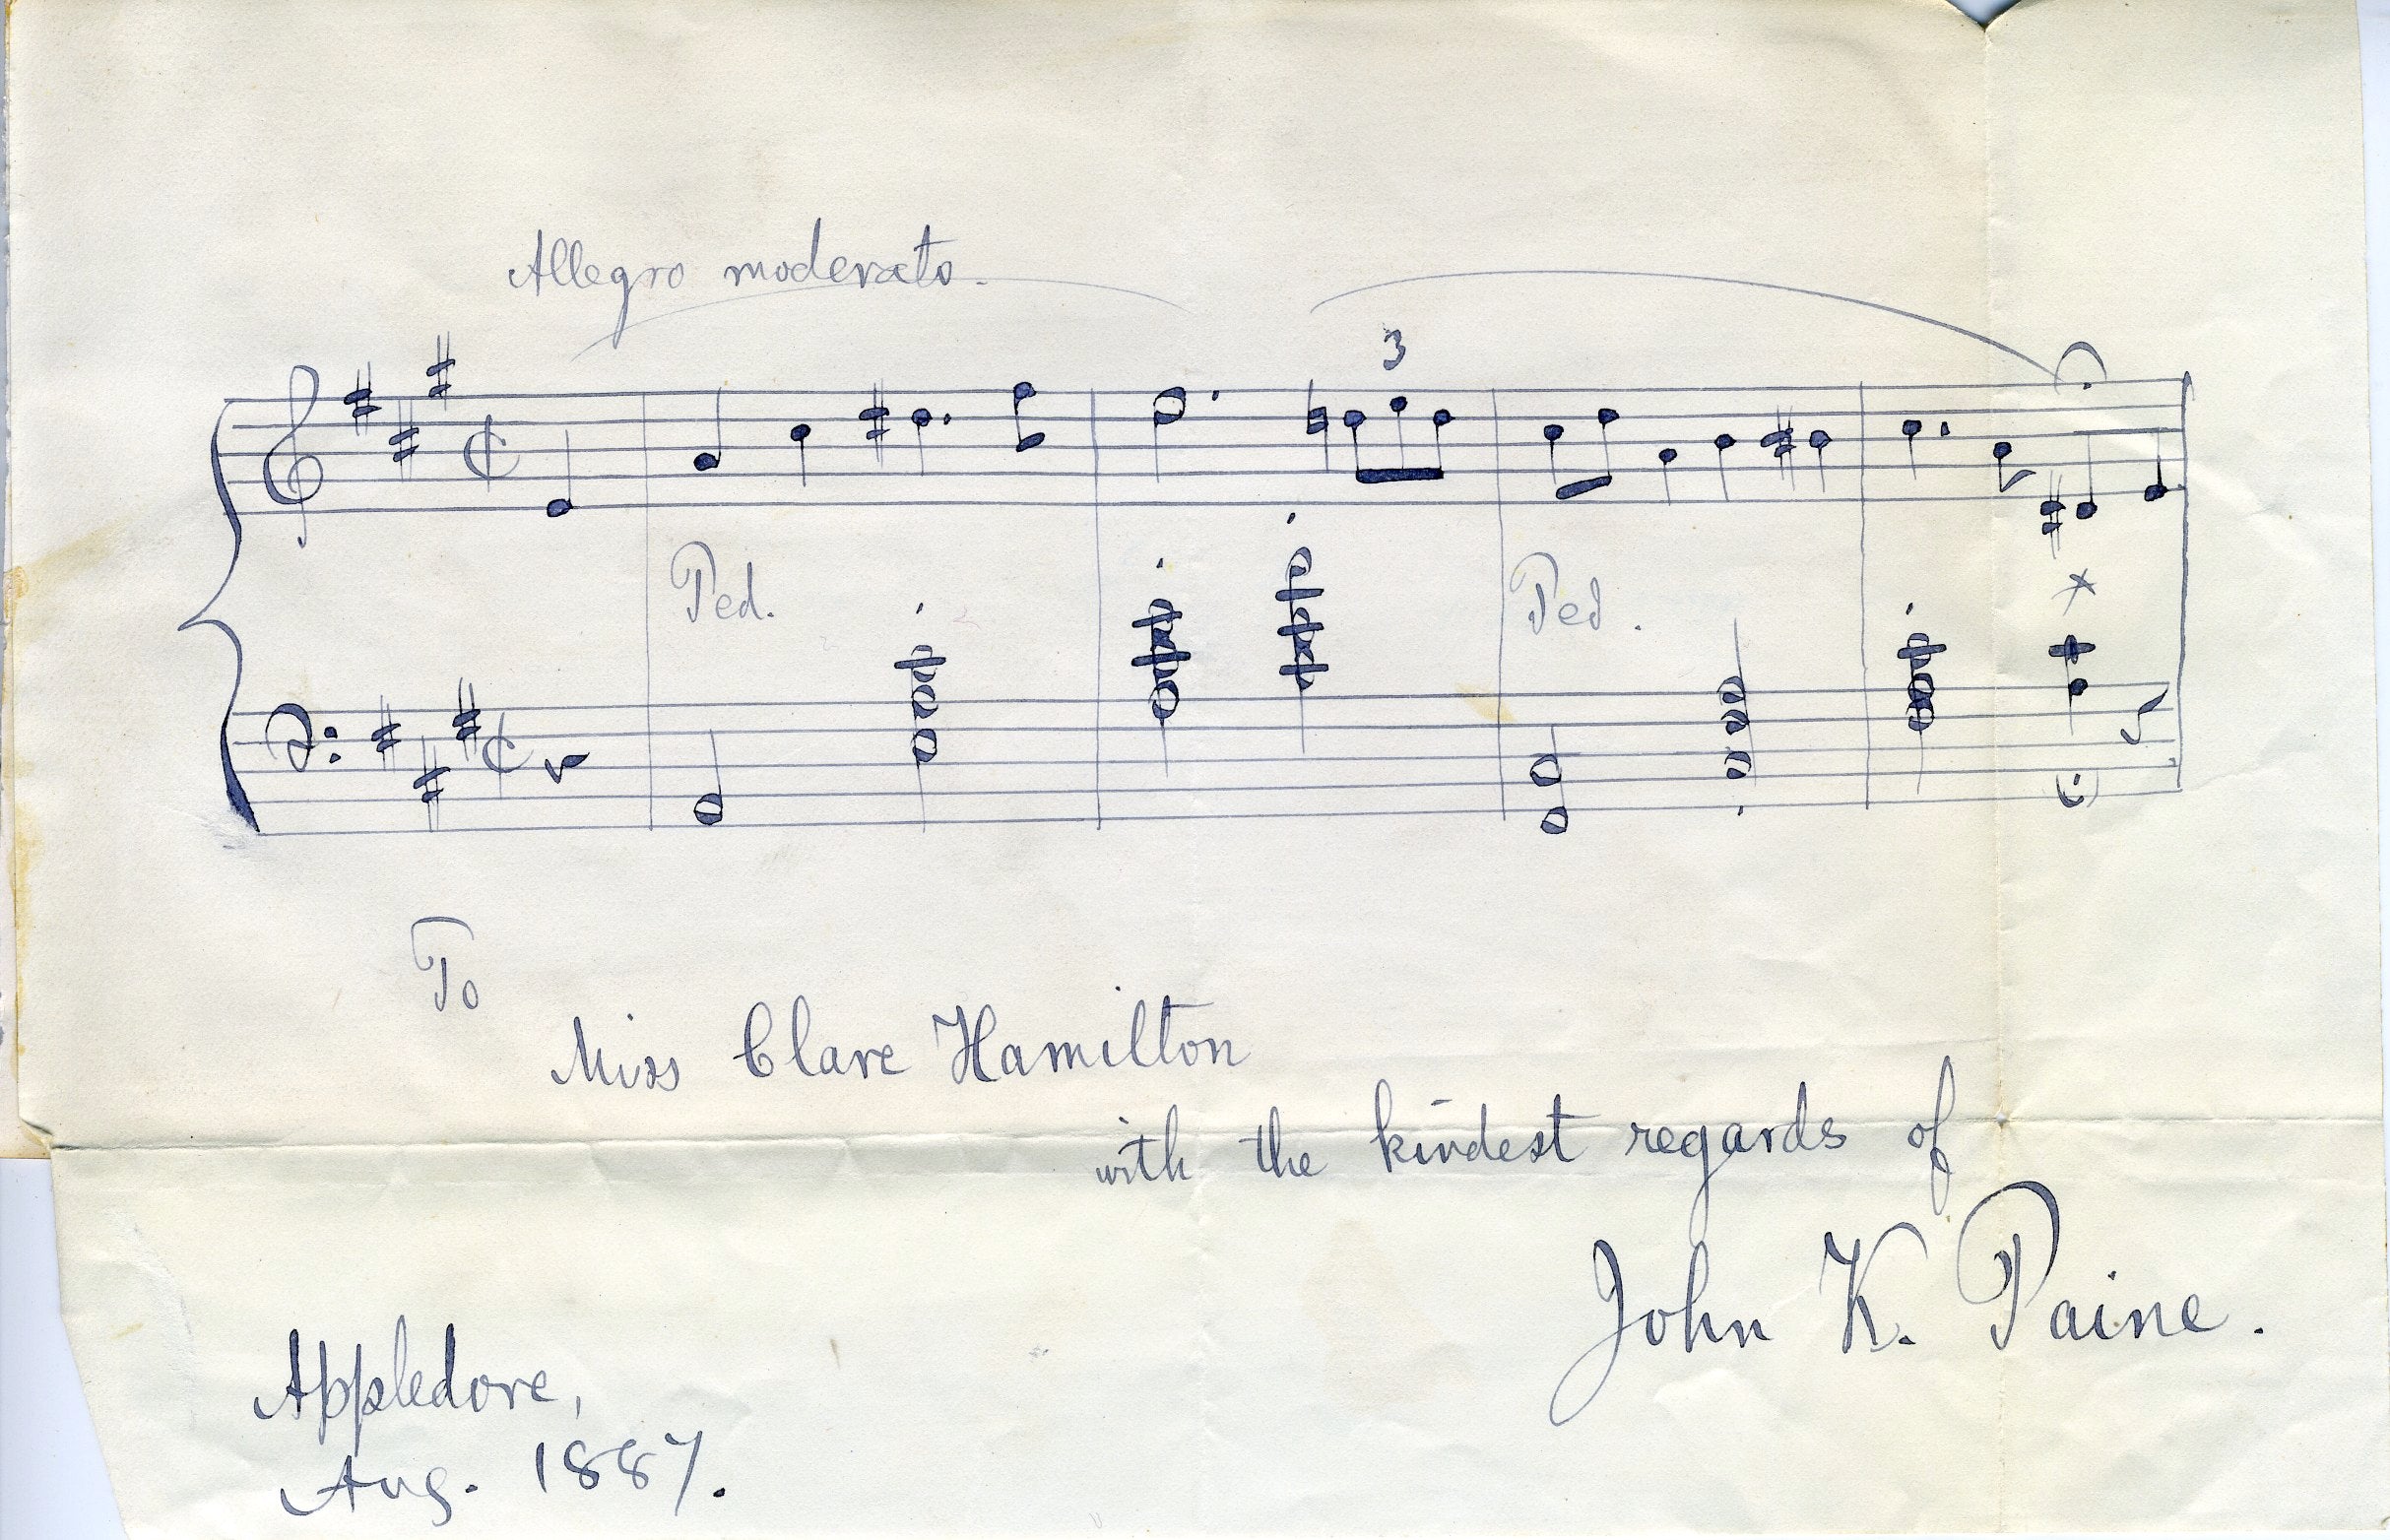 Allegro moderato.
3
Ped.
Ped.
To
Miss Clare Hamilton
with the kindest regards of
John K. Paine.
Appledore,
Aug. 1887.